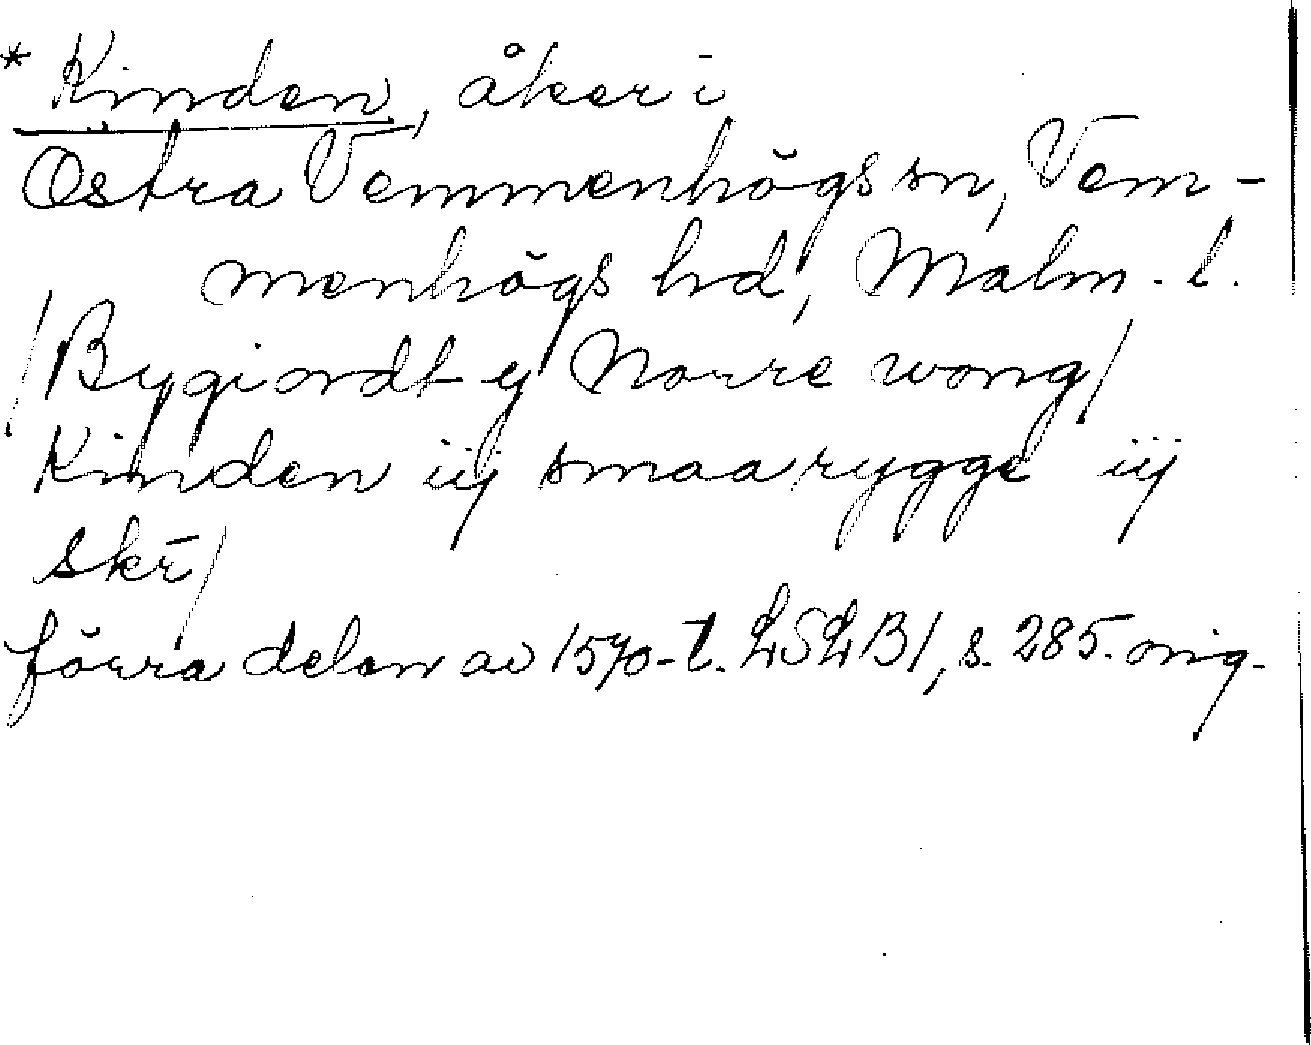 * Kinden, åker i
Östra Vemmenhögs sn, Vem-
menhögs hd, Malm. l.
/Bygiordt y Norre wong/
Kinden iij smaa rygge iij
skr̄/
förra delen av 1570-t. LSLB1, s. 285. orig.